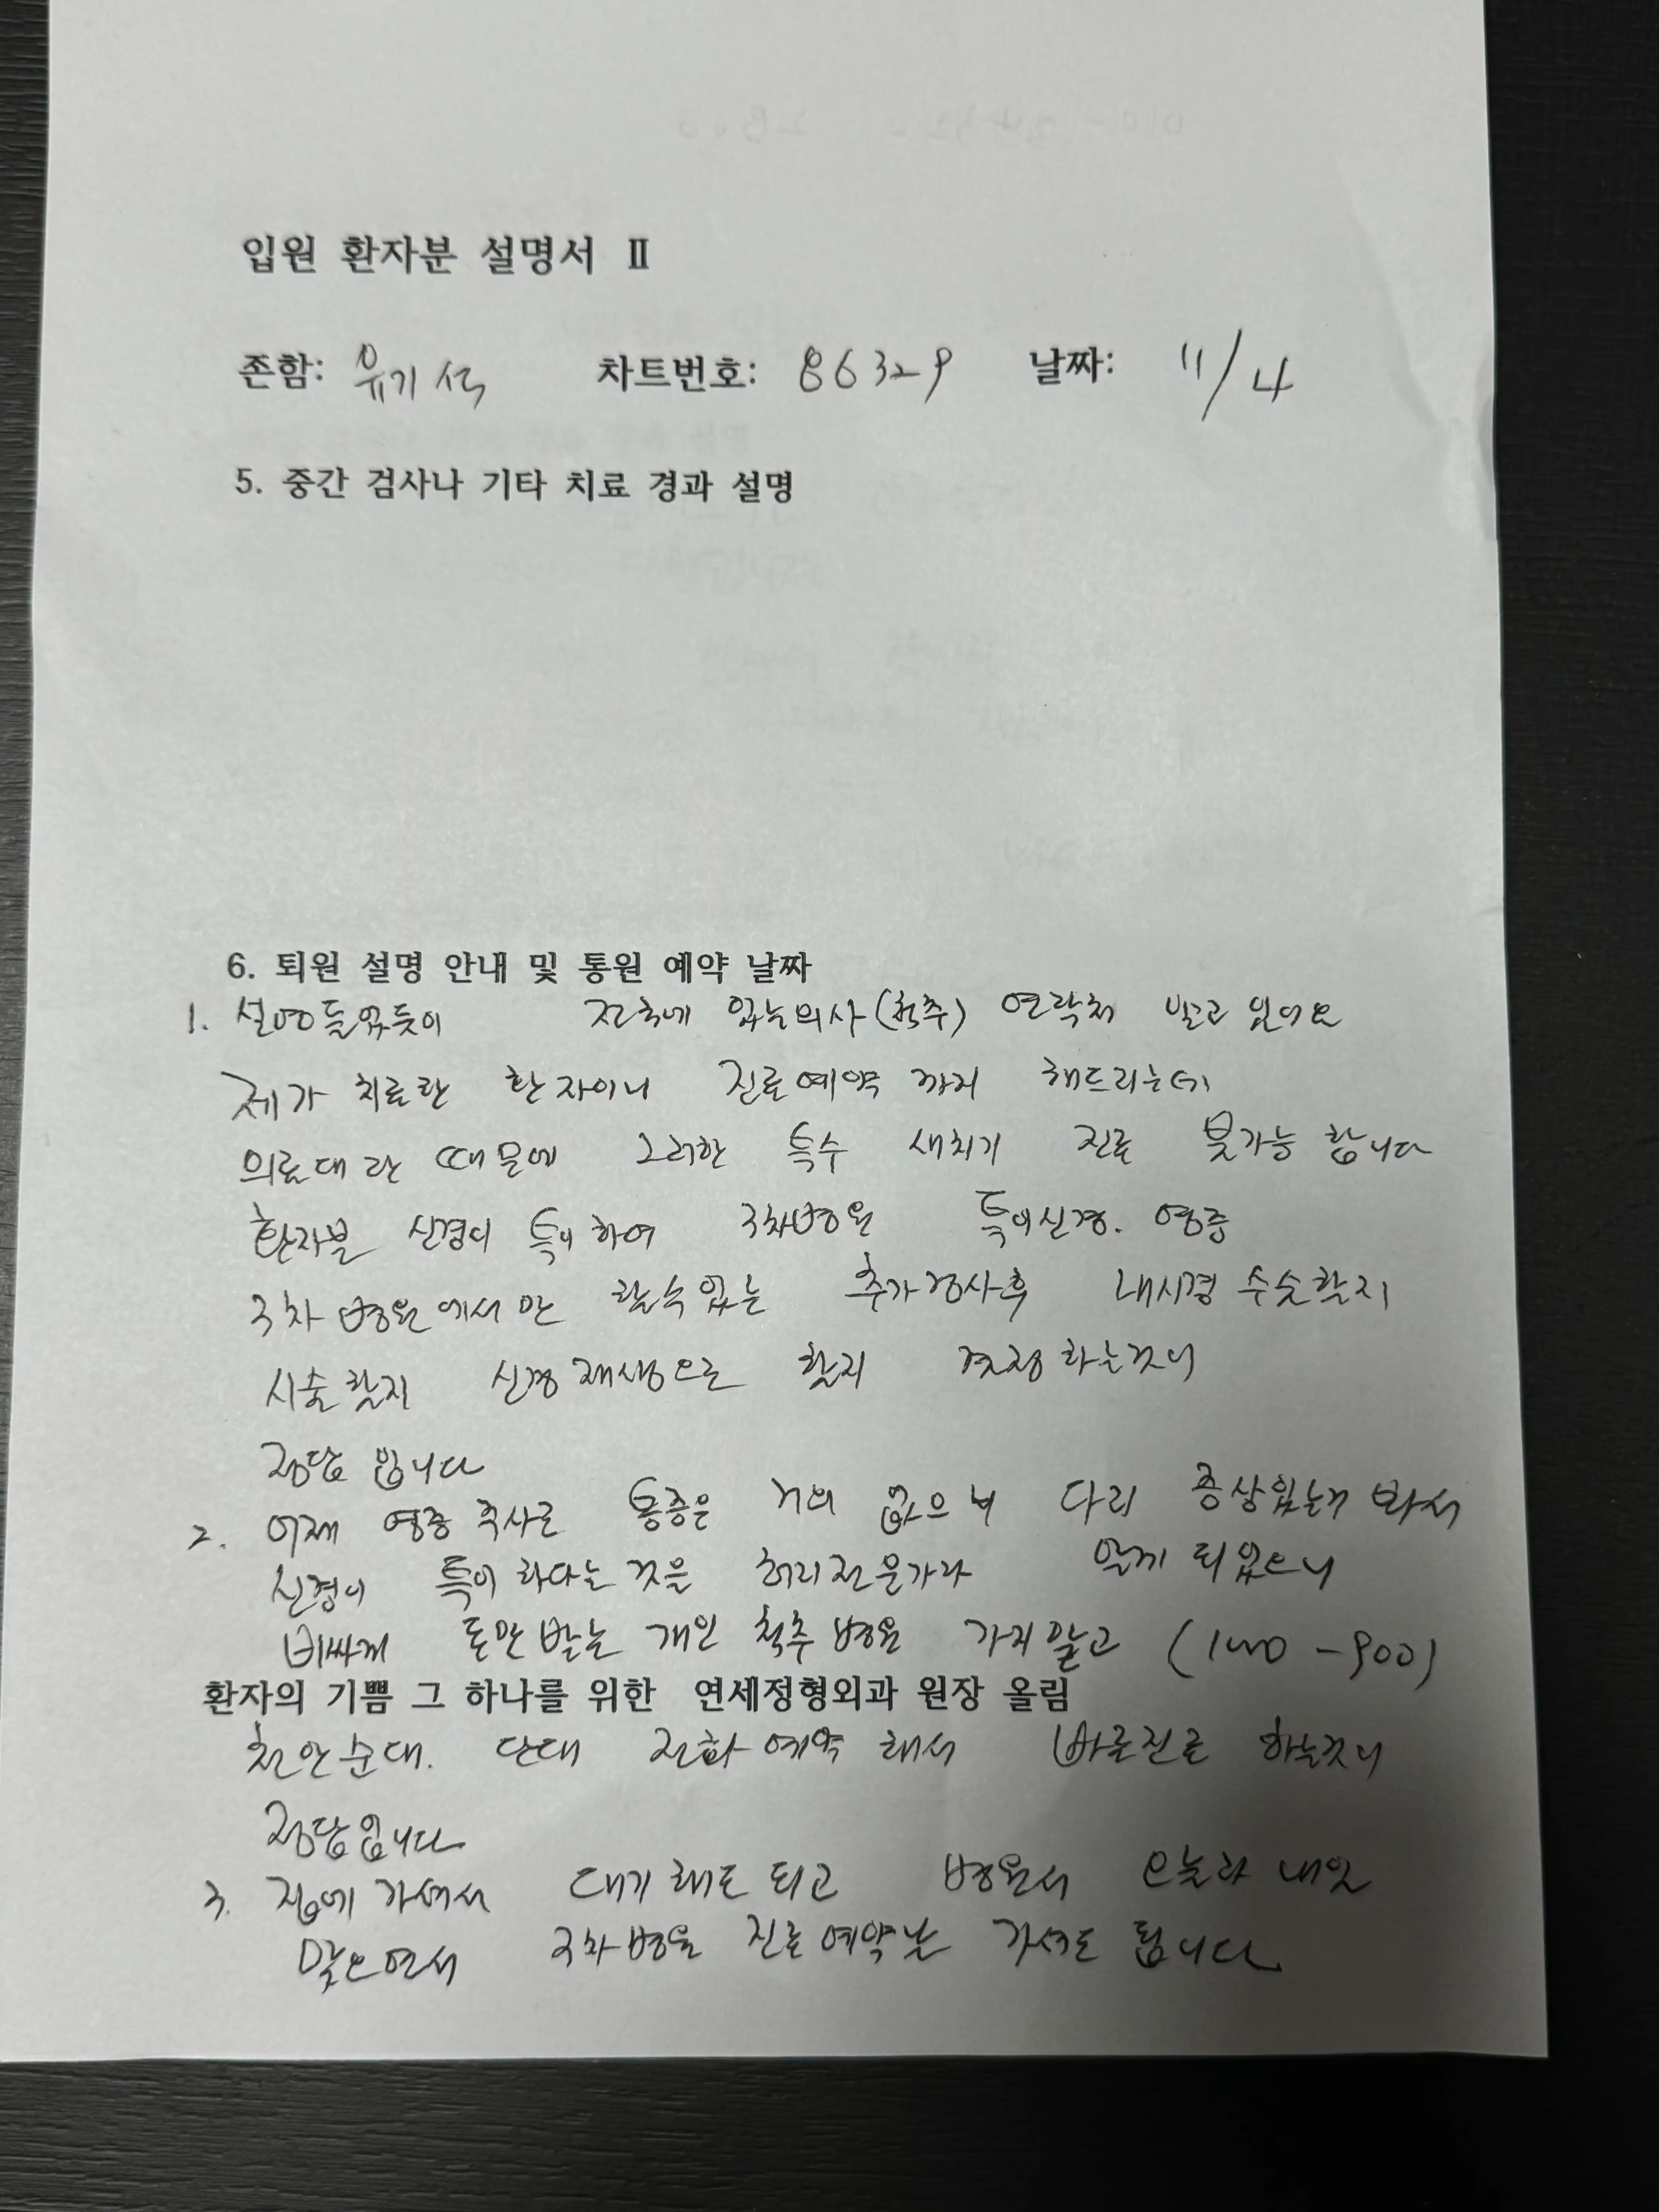 입원 환자분 설명서 II
존함: 유기석 차트번호: 86329 날짜: 11/4
5. 중간 검사나 기타 치료 경과 설명
6. 퇴원 설명 안내 및 통원 예약 날짜
1. 설명 들었듯이 전국에 있는 의사(척추) 연락처 알고 있어요
제가 치료한 환자이니 진료예약 까지 해드리는데
의료대란 때문에 그러한 특수 새치기 진료 불가능 합니다
환자분 신경이 특이하여 3차병원 특이신경. 염증
3차 병원에서만 할수있는 추가검사후 내시경 수술할지
시술할지 신경재생으로 할지 결정하는것이
정답 입니다
2. 어제 염증 주사로 통증은 거의 없으나 다리 증상있는거 봐서
신경이 특이하다는 것을 허리전문가라 알게 되었으니
비싸게 돈만받는 개인 척추병원 가지말고 (1000-900)
환자의 기쁨 그 하나를 위한 연세정형외과 원장 올림
천안순대. 단대 전화예약 해서 바로진료 하는것이
정답입니다
3. 집에 가셔서 대기해도 되고 병원서 오늘과 내일
맞으면서 3차병원 진료예약날 가셔도 됩니다